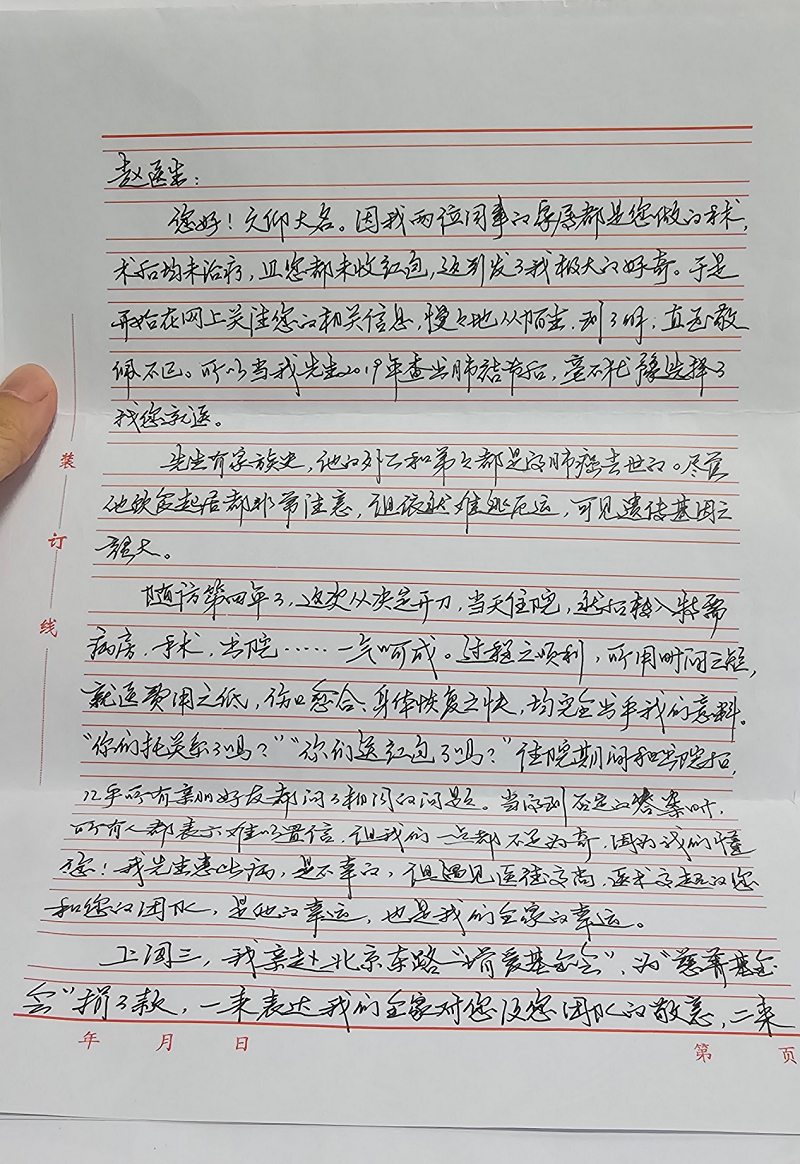 赵医生：
您好！久仰大名。因我两位同事的房屋都是您做的手术，
术后均未治疗，且您都未收红包，这引发了我极大的好奇。于是
开始在网上关注您的相关信息，慢慢地从陌生，到了解；直至敬
佩不已。所以当我先生2019年查出肺结节后，毫不犹豫选择了
找您就医。
先生有家族史，他的外公和弟弟都是因肺癌去世的。尽管
他饮食起居都非常注意，但依然难逃厄运，可见遗传基因之
强大。
随访第四年了，这次从决定开刀，当天住院，然后转入特需
病房、手术、出院……一气呵成。过程之顺利，所用时间之短，
就医费用之低，伤口愈合、身体恢复之快，均完全出乎我们意料。
“你们托关系了吗？”“你们送红包了吗？”住院期间和出院后，
几乎所有亲朋好友都问了相同的问题。当得到否定的答案时，
所有人都表示难以置信，但我们一点都不足为奇，因为我们懂
您！我先生患此病，是不幸的，但遇见医德高尚、医术高超的您
和您的团队，是他的幸运，也是我们全家的幸运。
上周三，我亲赴北京东路“ 爱基金会”，为“慈善基金
会”捐了款，一来表达我们全家对您及您团队的敬意，二来
装
订
线
年 月 日
第 页